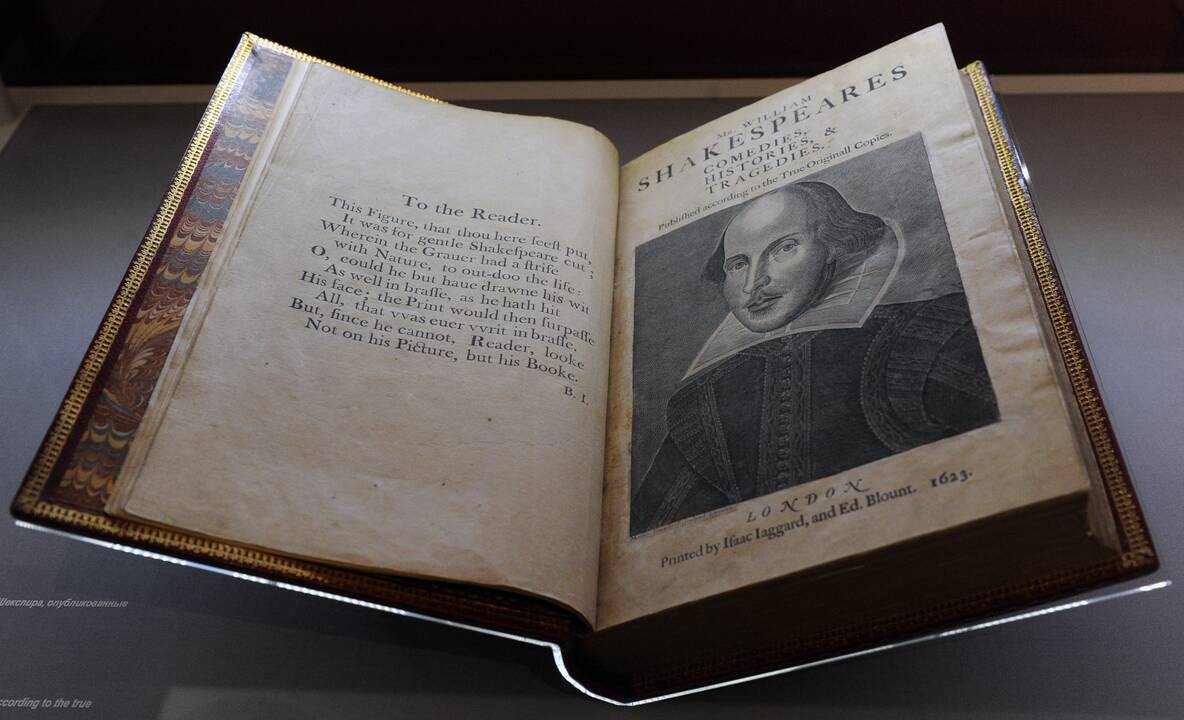 To the Reader.
This Figure, that thou here ſeeſt put,
It was for gentle Shakeſpeare cut;
Wherein the Grauer had a ſtrife
with Nature, to out-doo the life:
O, could he but haue drawne his wit
As well in braſſe, as he hath hit
His face; the Print would then ſurpaſſe
All, that vvas euer vvrit in braſſe.
But, ſince he cannot, Reader, looke
Not on his Picture, but his Booke.
B. I.
Mr. WILLIAM
SHAKESPEARES
COMEDIES,
HISTORIES, &
TRAGEDIES.
Publiſhed according to the True Originall Copies.
LONDON
Printed by Iſaac Iaggard, and Ed. Blount. 1623.
Шекспира, опубликованные
according to the true